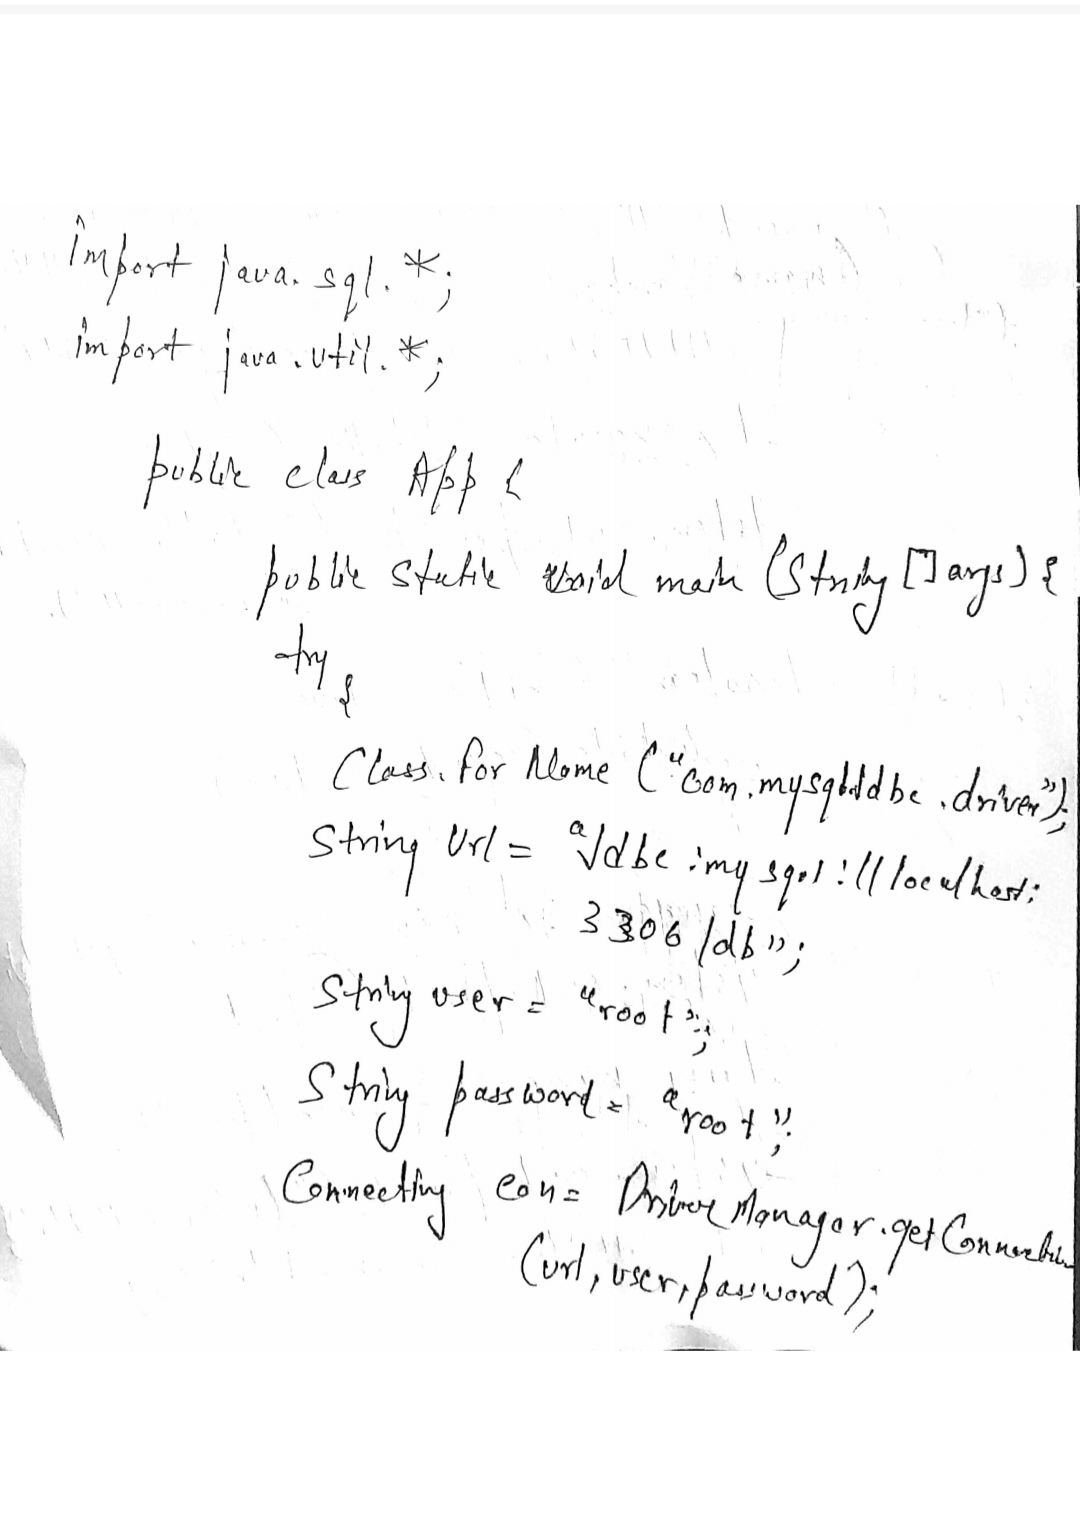 import java.sql.*;
import java.util.*;
public class App {
public static void main (String []args) {
try
{
Class.forName ("com.mysql.jdbc.driver");
String Url = "jdbc:mysql://localhost:
3306/db";
String user = "root";
String password = "root";
Connecting con = DriverManager.getConnection
(url, user, password);